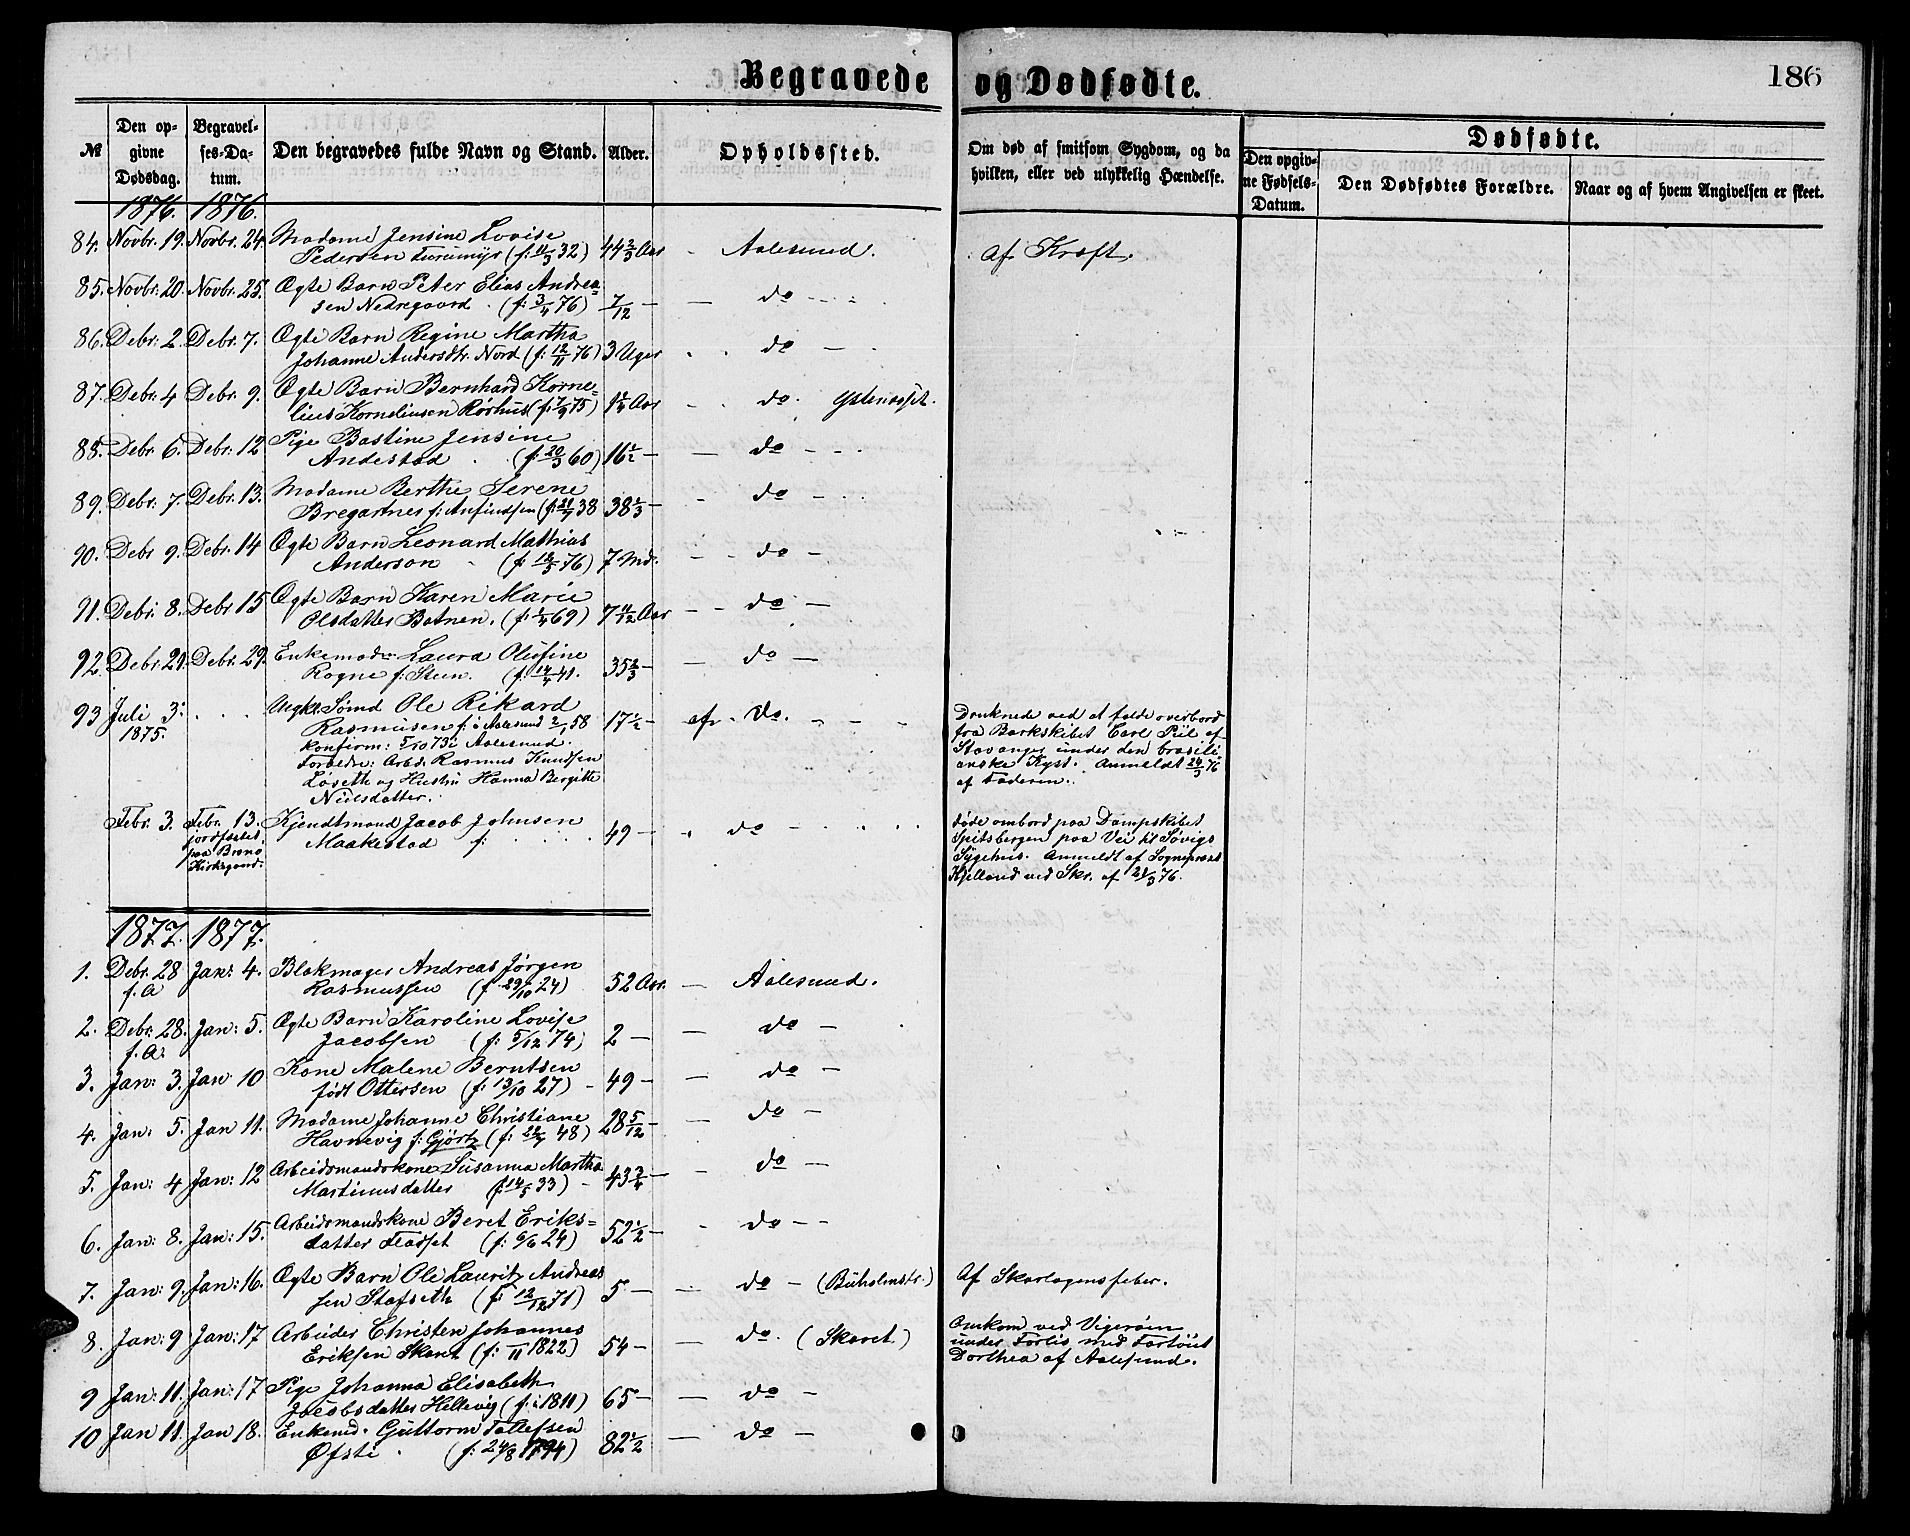 Begravede og Dødfødte.
186
№
Den op-
givne
Dødsdag.
Begravel-
ses-Da-
tum.
Den begravedes fulde Navn og Stand.
Alder.
Opholdssted.
Om død af smitsom Sygdom, og da
hvilken, eller ved ulykkelig Hændelse.
Dødfødte.
Den opgiv-
ne Fødsels-
Datum.
Den Dødfødtes Forældre.
Naar og af hvem Angivelsen er skeet.
1876. 1876.
84. Novbr. 19. Novbr. 24. Madame Jensine Lovise
Pedersen (f: 11/3 32) 44 2/3 Aar - Aalesund. af Kræft.
85. Novbr. 20. Novbr. 25. Ægte Barn Peter Elias Andrea=
sen Nedregaard. (f: 3/4 76) 7/12 — — do
86. Debr: 2. Debr. 7. Ægte Barn Regine Martha
Johanne Andersdtr. Nord (f: 12/11 76) 3 Uger do
87. Debr: 4 Debr: 9. Ægte Barn Bernhard Korne=
lius Korneliusen Rørhus (f: 7/9 75) 1 1/4 Aar do.
88. Debr. 6. Debr. 12 Pige Bastine Jensine
Andestad (f: 20/3 60) 16 1/2 — — do
89. Debr. 7. Debr. 13. Madame Berthe Serene
Bregartnes f: Anfindsen (f: 21/7 38 38 1/3 — - do
90. Debr 9. Debr. 14 Ægte Barn Leonard Mathias
Anderson (f: 12/5 76) 7 Md. do
91. Debr: 8. Debr 15 Ægte Barn Karen Marie
Olsdatter Batnen. (f: 1/4 69) 7 11/12 Aar do
92. Debr. 21. Debr. 29. Enkemadm Laura Olufine
Rogne f: Steen. (f: 14/4 41. 35 2/3 — — do
93 Juli 3:
1875. Ungkr. Sømd Ole Rikard
Rasmusen f: i Aalesund 2/1 58 17 1/2 — af do.
konfirm: 5/10 73 i Aalesund.
Forældre: Arbd. Rasmus Knudsen
Løseth og Hustru Hanna Bergitte
Nielsdatter.
Druknede ved at falde overbord
fra Barkskibet Carl Piil af
Stavanger under den brasili
anske Kyst. Anmeldt 24/3 76
af Faderen.
Febr. 3. Febr. 13.
jordfæstet
paa Brønø
Kirkegaard.
Kjendtmand Jacob Johnsen
Maakestad f: 49 — do
døde ombord paa Dampskibet
Spitsbergen paa Vei til Søvigs
Sygehus. Anmeldt af Sognepræst
Kjelland ved Skr. af 21/3 76.
1877. 1877.
1. Debr. 28
f. A Jan: 4. Blokmager Andreas Jørgen
Rasmussen (f 29/10 24) 52 Aar. — Aalesund.
2. Debr. 28.
f. A. Jan: 5. Ægte Barn Karoline Lovise
Jacobsen (f: 5/12 74) 2 — — do —
3. Jan: 3. Jan 10 Kone Malene Berntsen
født Ottersen (f: 13/10 27) - 49 — — do —
4. Jan: 5. Jan 11. Madame Johanne Christiane
Havnevig f: Gjørtz (f: 22/7 48) 28 5/12 — — do —
5. Jan: 4 Jan: 12 Arbeidsmandskone Susanna Martha
Martinusdatter (f: 14/5 33) - 43 3/4 — - do —
6. Jan: 8. Jan: 15. Arbeidsmandskone Beret Eriks=
datter Fladset (f: 6/6 24) 52 1/2 — - do - -
7. Jan: 9. Jan: 16. Ægte Barn Ole Lauritz Andreas
sen Stafseth (f: 12/12 71) 5 — — do - (Buholmstr.) Af Skarlagensfeber.
8. Jan: 9 Jan: 17 Arbeider Christen Johannes
Eriksen Skaret (f: /11 1822) 54 — — do. (Skaret)
Omkom ved Vigerøen
under Forlis med Fartøiet
Dorthea af Aalesund.
9 Jan: 11. Jan: 17 Pige Johanna Elisabeth
Jacobsdatter Hellevig (f: i 1811) 65 — — do -
10 Jan 11. Jan 18. Enkemd. Guttorm Tollefsen
Øfsti. (f: 24/8 1794) 82 1/2 — do —